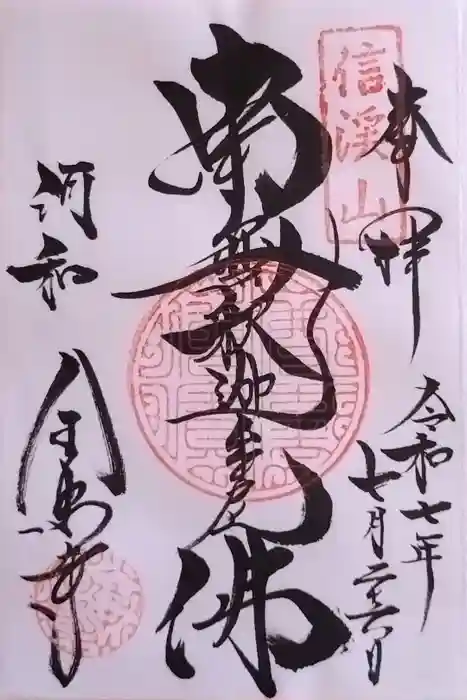 信渓山
奉拝
令和七年
七月二十六日
南無釈迦牟尼佛
河和
全忠寺